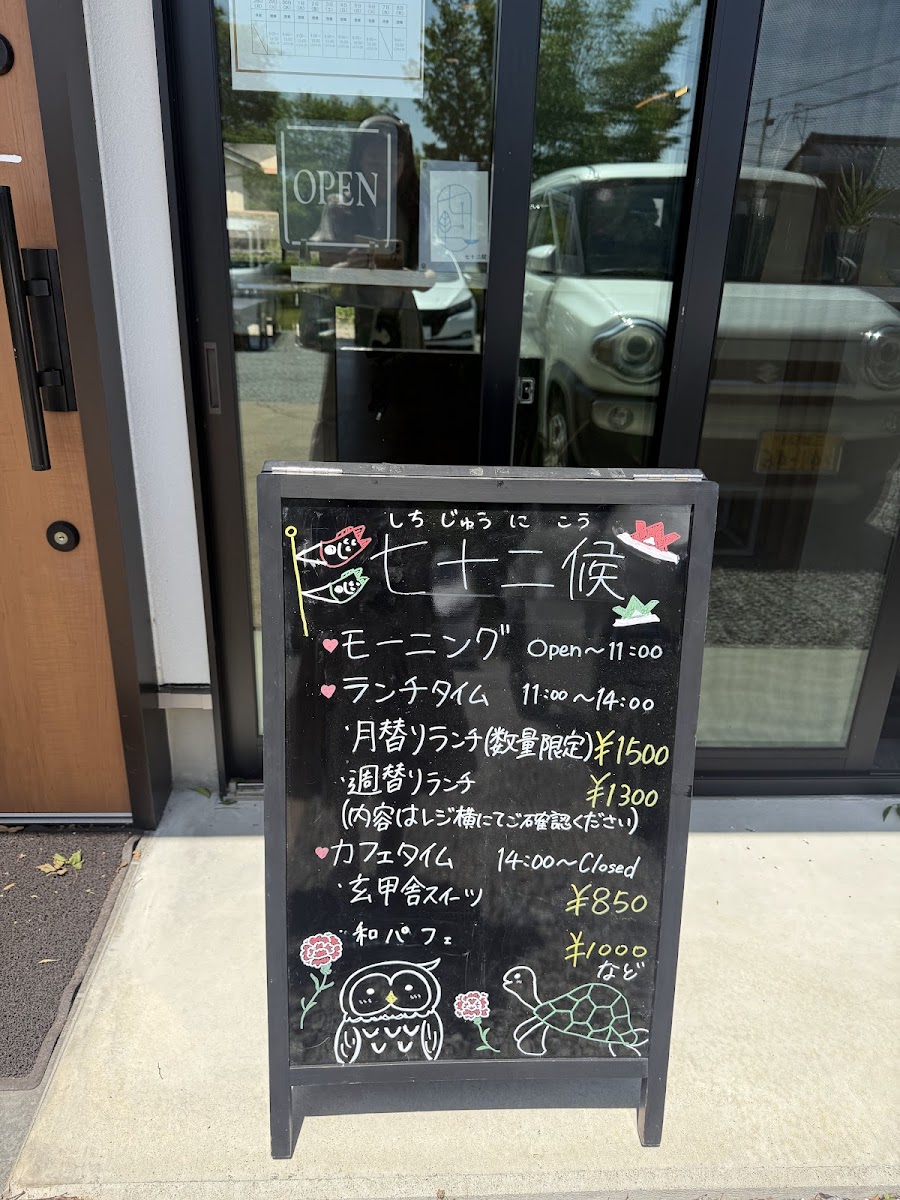 OPEN
七十二候
しちじゅうにこう
七十二候
モーニング Open～11:00
ランチタイム 11:00～14:00
・月替りランチ(数量限定)¥1500
・週替りランチ ¥1300
(内容はレジ横にてご確認ください)
カフェタイム 14:00～Closed
・玄甲舎スイーツ ¥850
・和パフェ ¥1000
など